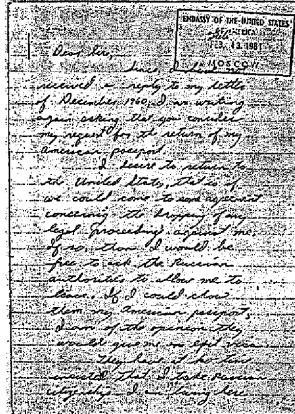 EMBASSY OF THE UNITED STATES
OF AMERICA
FEB 13 1961
MOSCOW
Dear Sir,
Since I have not
received a reply to my letter
of December 1960, I am writing
again asking that you consider
my request for the return of my
American passport.
I desire to return to
the United States, that is if
we could come to some agreement
concerning the dropping of any
legal proceedings against me,
if so, than I would be
free to ask the Russian
authorities to allow me to
leave. If I could show
them my American passport,
I am of the opinion they
would give me an exit visa.
They have at no time
insisted that I take Russian
I am living here